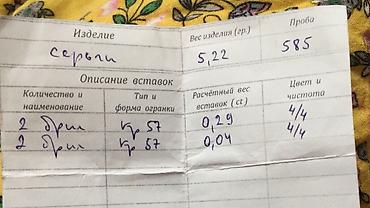 Изделие Вес изделия (гр.) Проба
серьги 5,22 585
Описание вставок
Количество и наименование Тип и форма огранки Расчётный вес вставок (ct) Цвет и чистота
2 брил кр 57 0,29 4/4
2 брил кр 57 0,04 4/4